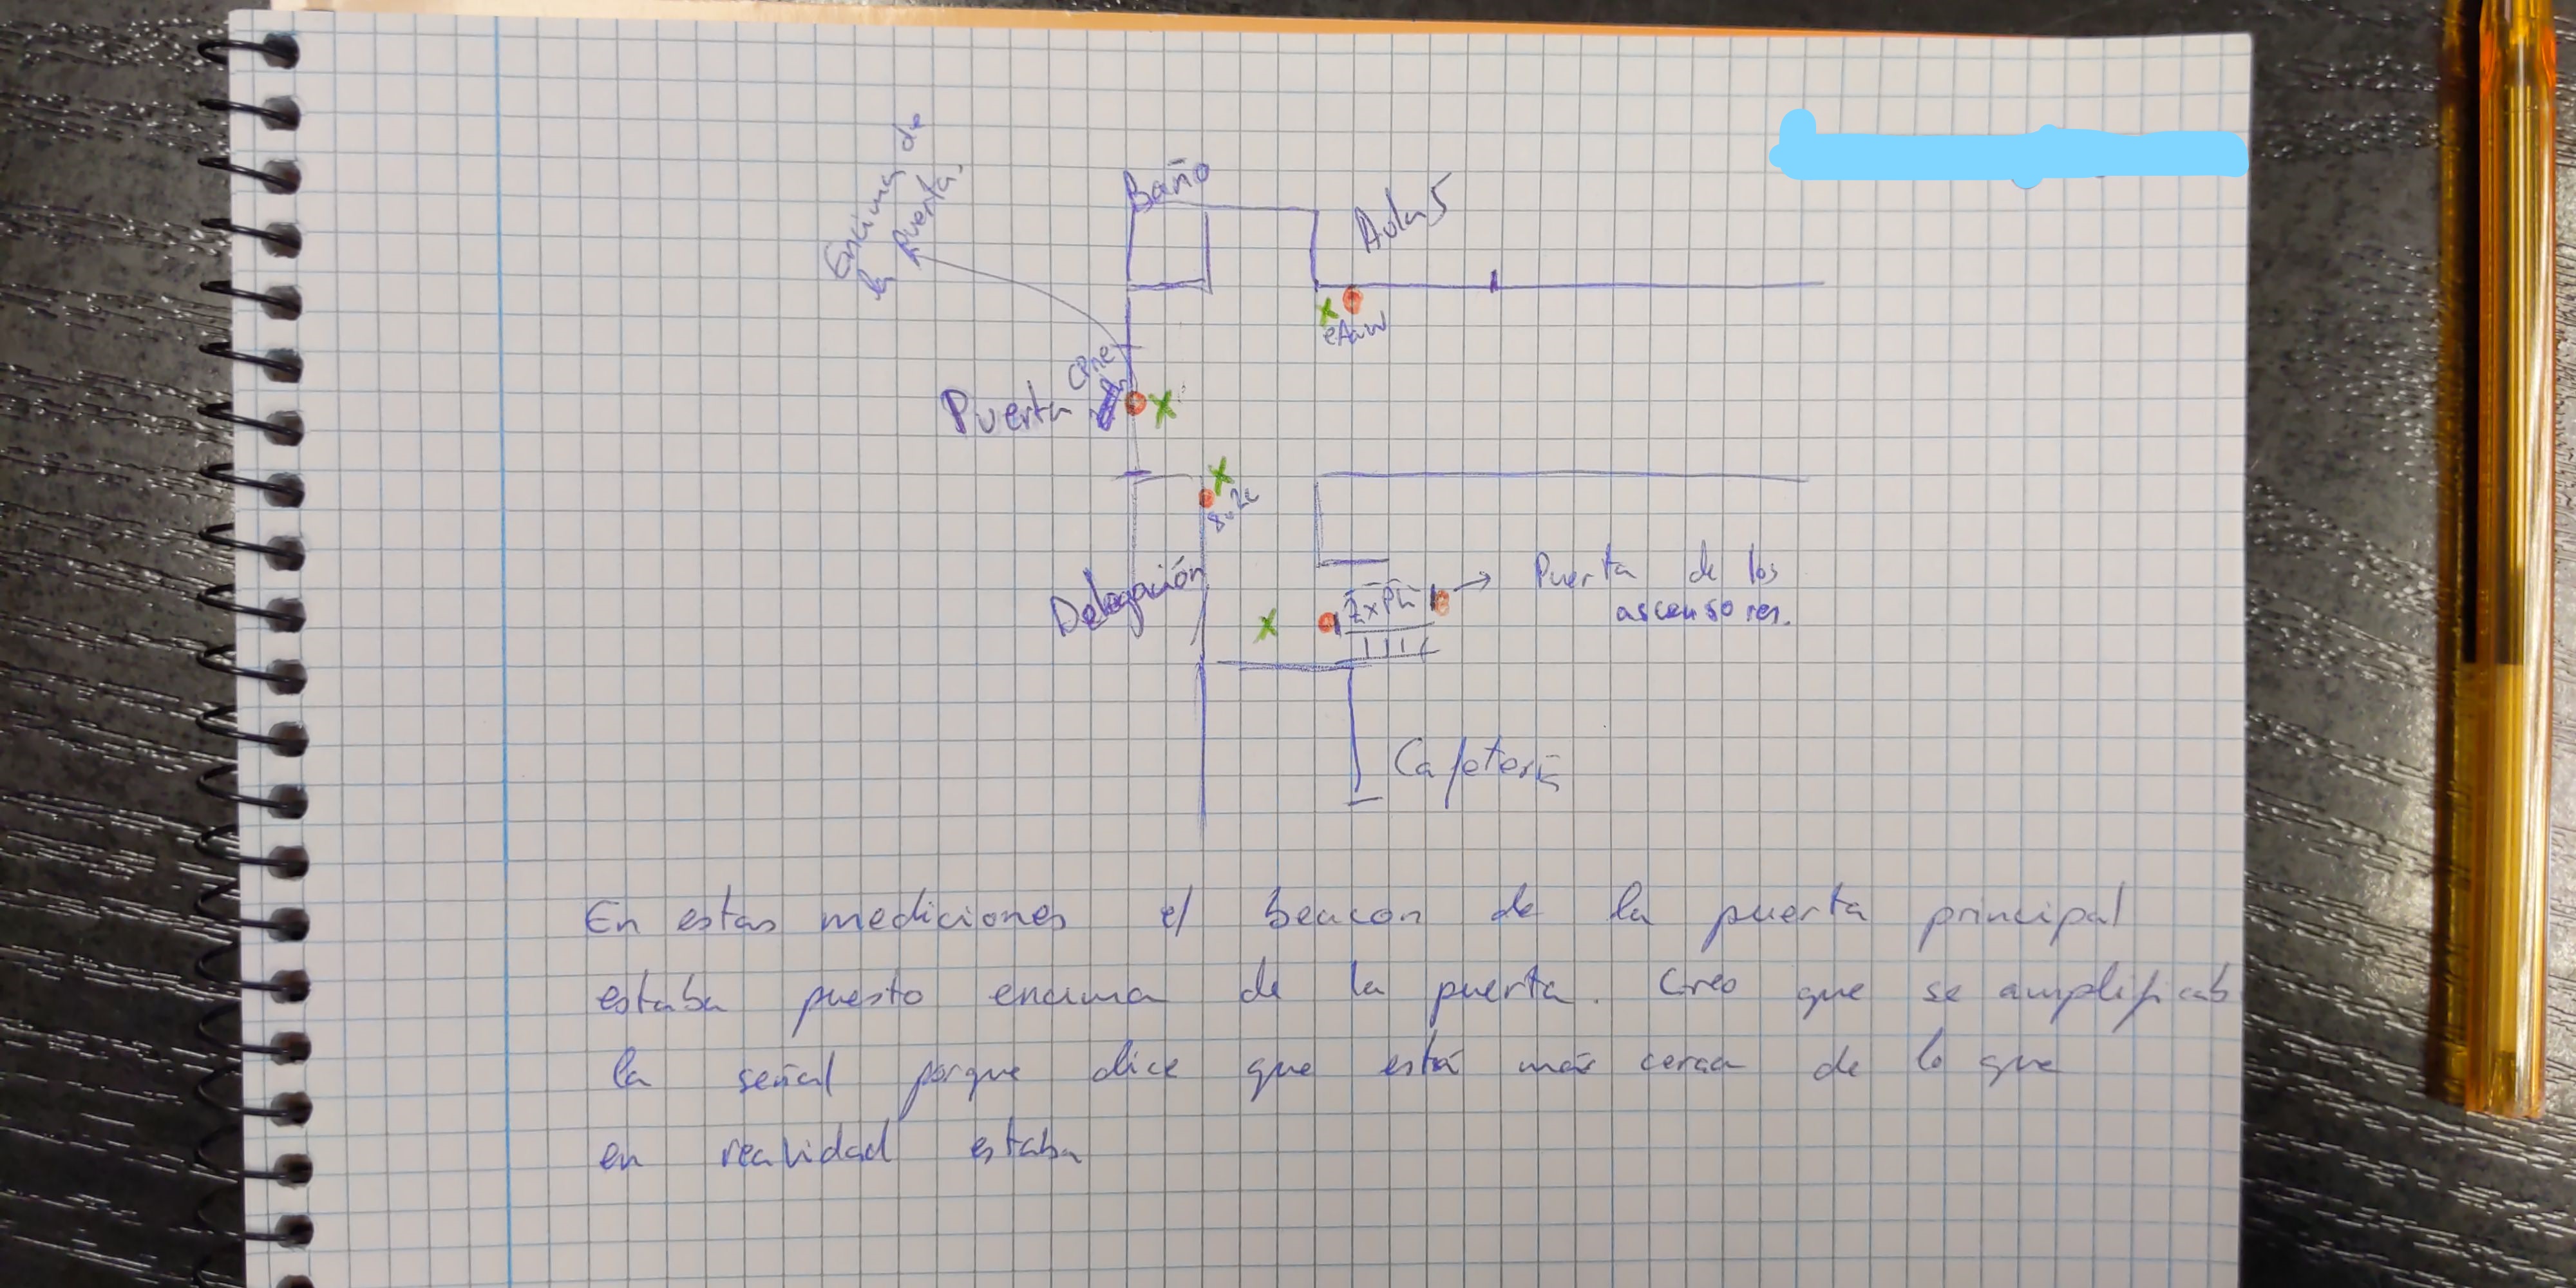 Encima de
la puerta.
Baño
Aula 5
eAuw
Puerta
Delegación
ZxPh
Puerta de los
ascensores.
Cafetería
En estas mediciones el beacon de la puerta principal
estaba puesto encima de la puerta. Creo que se amplificab
la señal porque dice que está más cerca de lo que
en realidad estaba